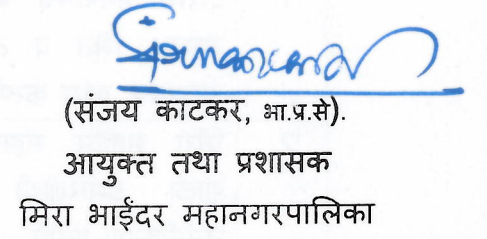 (संजय काटकर, भा.प्र.से).
आयुक्त तथा प्रशासक
मिरा भाईंदर महानगरपालिका